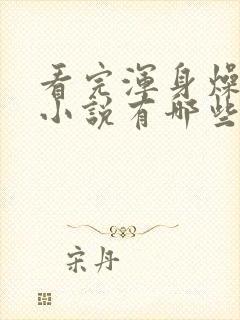 看完渾身燥
小說有哪些
宋丹